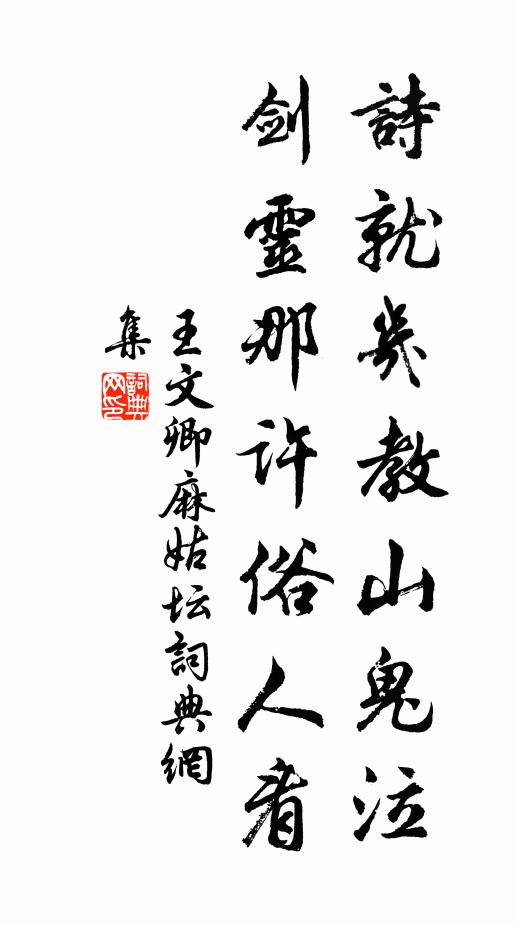 詩就幾教山鬼泣
劍靈那許俗人看
王文卿麻姑坛詞典網
集
詞典
网印